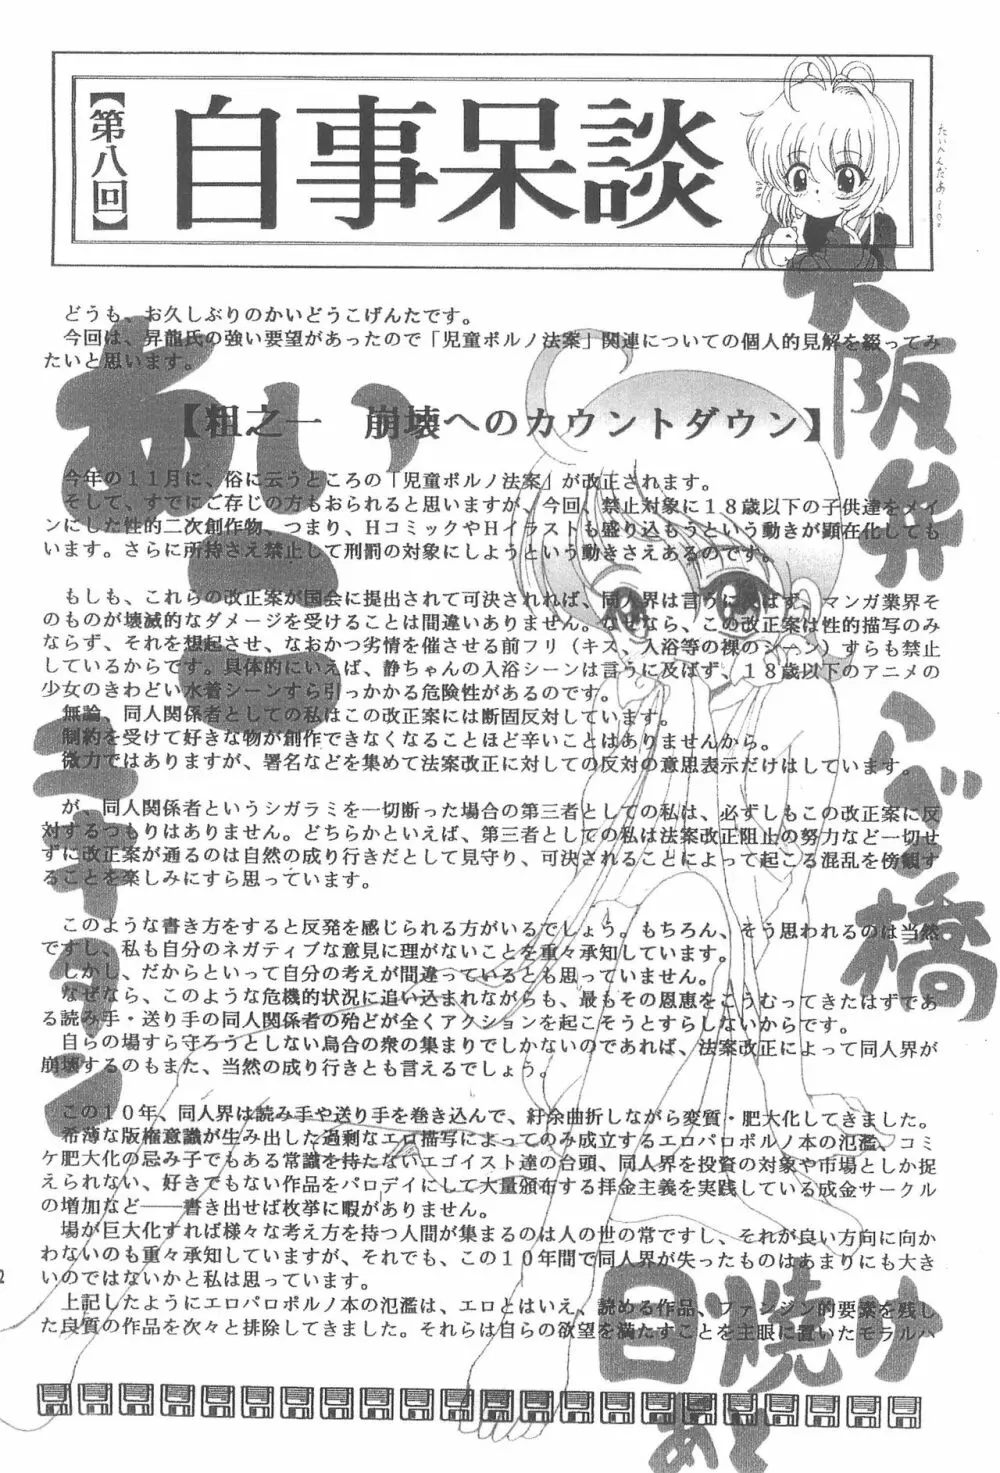 【第八回】
自事呆談
たいへんだあ～。。
どうも、お久しぶりのかいどうこげんたです。
今回は、昇龍氏の強い要望があったので「児童ポルノ法案」関連についての個人的見解を綴ってみ
たいと思います。
【粗之一　崩壊へのカウントダウン】
今年の１１月に、俗に云うところの「児童ポルノ法案」が改正されます。
そして、すでにご存じの方もおられると思いますが、今回、禁止対象に１８歳以下の子供達をメイ
ンにした性的二次創作物、つまり、ＨコミックやＨイラストも盛り込もうという動きが顕在化しても
います。さらに所持さえ禁止して刑罰の対象にしようという動きさえあるのです。
もしも、これらの改正案が国会に提出されて可決されれば、同人界は言うに及ばず、マンガ業界そ
のものが壊滅的なダメージを受けることは間違いありません。なぜなら、この改正案は性的描写のみ
ならず、それを想起させ、なおかつ劣情を催させる前フリ（キス、入浴等の裸のシーン）すらも禁止
しているからです。具体的にいえば、静ちゃんの入浴シーンは言うに及ばず、１８歳以下のアニメの
少女のきわどい水着シーンすら引っかかる危険性があるのです。
無論、同人関係者としての私はこの改正案には断固反対しています。
制約を受けて好きな物が創作できなくなることほど辛いことはありませんから。
微力ではありますが、署名などを集めて法案改正に対しての反対の意思表示だけはしています。
が、同人関係者というシガラミを一切断った場合の第三者としての私は、必ずしもこの改正案に反
対するつもりはありません。どちらかといえば、第三者としての私は法案改正阻止の努力など一切せ
ずに改正案が通るのは自然の成り行きだとして見守り、可決されることによって起こる混乱を傍観す
ることを楽しみにすら思っています。
このような書き方をすると反発を感じられる方がいるでしょう。もちろん、そう思われるのは当然
ですし、私も自分のネガティブな意見に理がないことを重々承知しています。
しかし、だからといって自分の考えが間違っているとも思っていません。
なぜなら、このような危機的状況に追い込まれながらも、最もその恩恵をこうむってきたはずであ
る読み手・送り手の同人関係者の殆どが全くアクションを起こそうとすらしないからです。
自らの場すら守ろうとしない烏合の衆の集まりでしかないのであれば、法案改正によって同人界が
崩壊するのもまた、当然の成り行きとも言えるでしょう。
この１０年、同人界は読み手や送り手を巻き込んで、紆余曲折しながら変質・肥大化してきました。
希薄な版権意識が生み出した過剰なエロ描写によってのみ成立するエロパロポルノ本の氾濫、コミ
ケ肥大化の忌み子でもある常識を持たないエゴイスト達の台頭、同人界を投資の対象や市場としか捉
えられない、好きでもない作品をパロデイにして大量頒布する拝金主義を実践している成金サークル
の増加など――書き出せば枚挙に暇がありません。
場が巨大化すれば様々な考え方を持つ人間が集まるのは人の世の常ですし、それが良い方向に向か
わないのも重々承知していますが、それでも、この１０年間で同人界が失ったものはあまりにも大き
いのではないかと私は思っています。
上記したようにエロパロポルノ本の氾濫は、エロとはいえ、読める作品、ファンジン的要素を残し
た良質の作品を次々と排除してきました。それらは自らの欲望を満たすことを主眼に置いたモラルハ
大阪弁
ハゲ橋
日焼け
あと
2